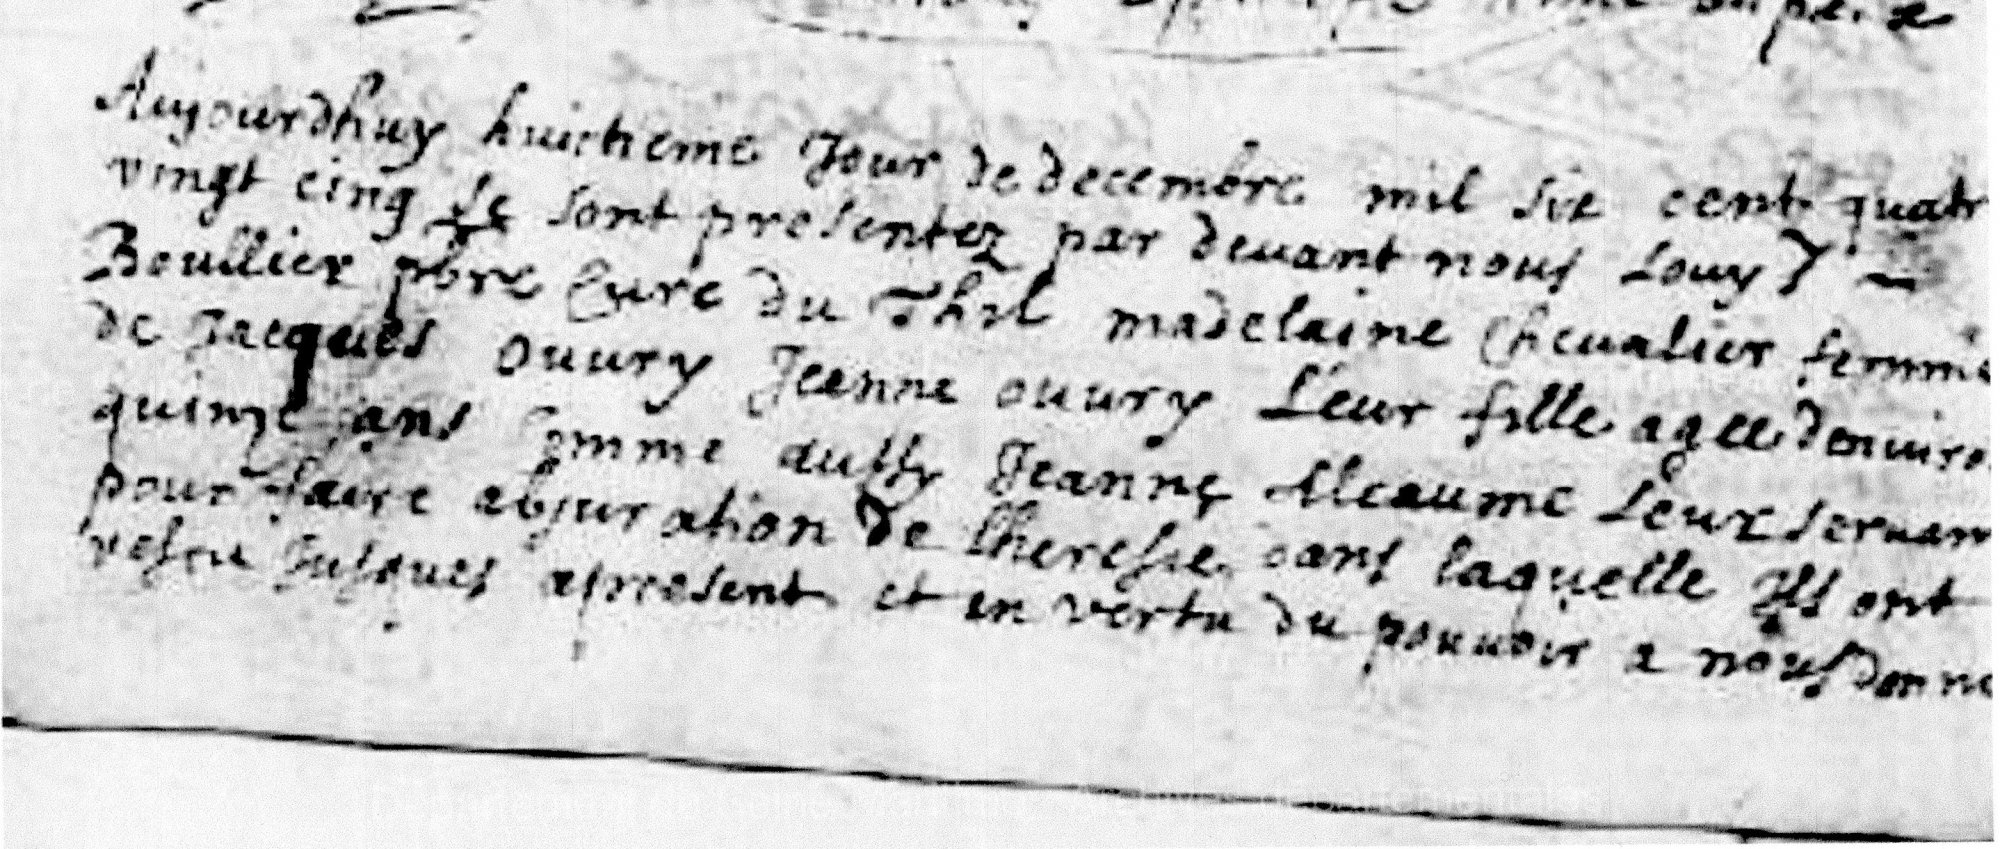 Aujourdhuy huictieme Jour de decembre mil six cent quatr
vingt cinq se sont presentez par deuant nous Louys
Boullier pbre Cure du Thil madelaine Cheualier femme
de Jacques ouury Jeanne ouury Leur fille agee denuiro
quinze ans Comme aussy Jeanne Alleaume Leur seruan
pour faire abjuration de lheresie dans laquelle Ils ont
vescu Jusques apresent et en vertu du pouuoir a nous donne